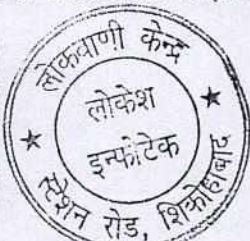 लोकवाणी केन्द्र
लोकेश
इन्फोटेक
स्टेशन रोड, शिकोहाबाद